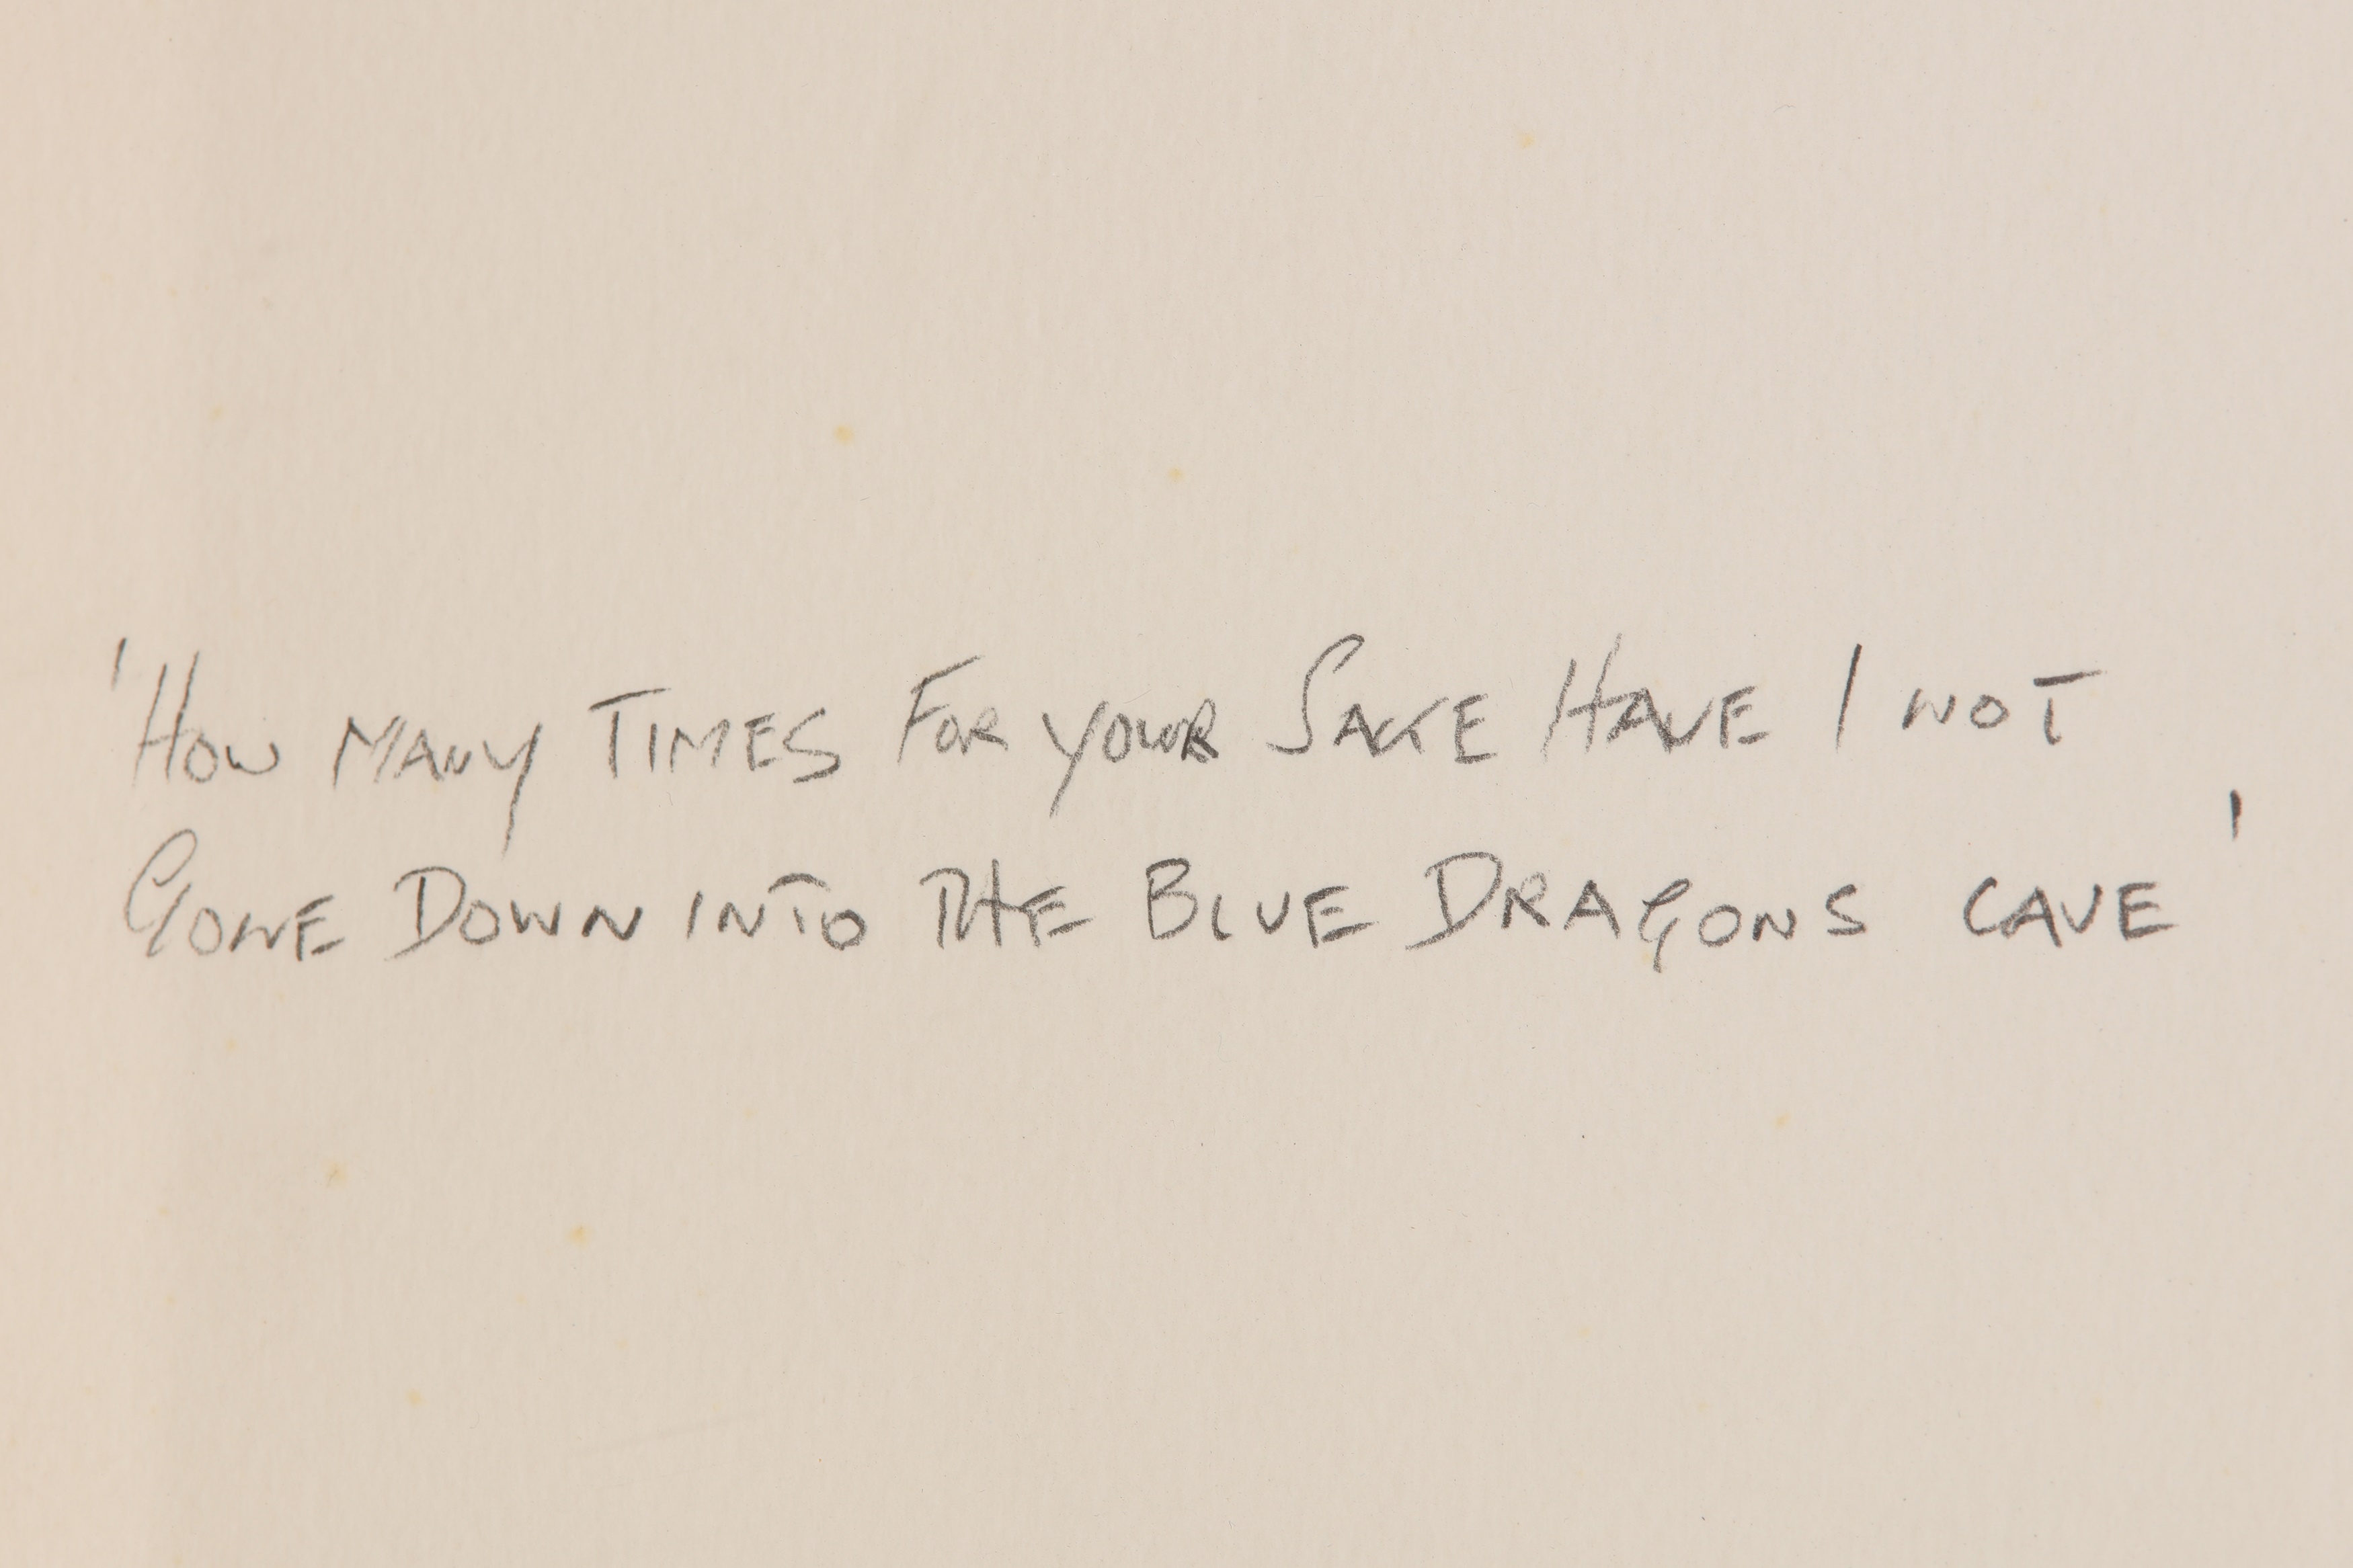 'How MANY TIMES FOR YOUR SAKE HAVE I NOT
GONE DOWN INTO THE BLUE DRAGONS CAVE'